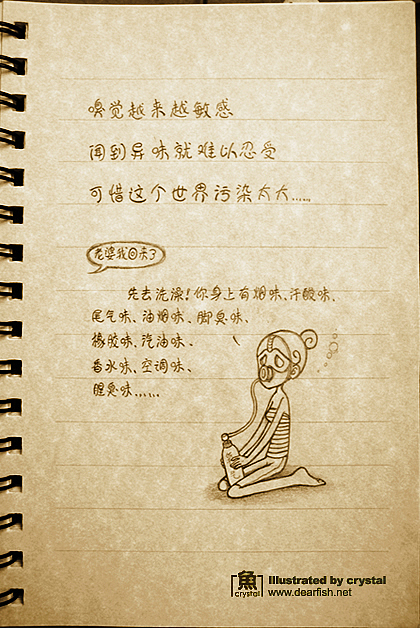 嗅觉越来越敏感
闻到异味就难以忍受
可惜这个世界污染太大……
老婆我回来了
先去洗澡!你身上有烟味、汗酸味、
尾气味、油烟味、脚臭味、
橡胶味、汽油味、
香水味、空调味、
腥臭味……
魚
crystal
Illustrated by crystal
www.dearfish.net